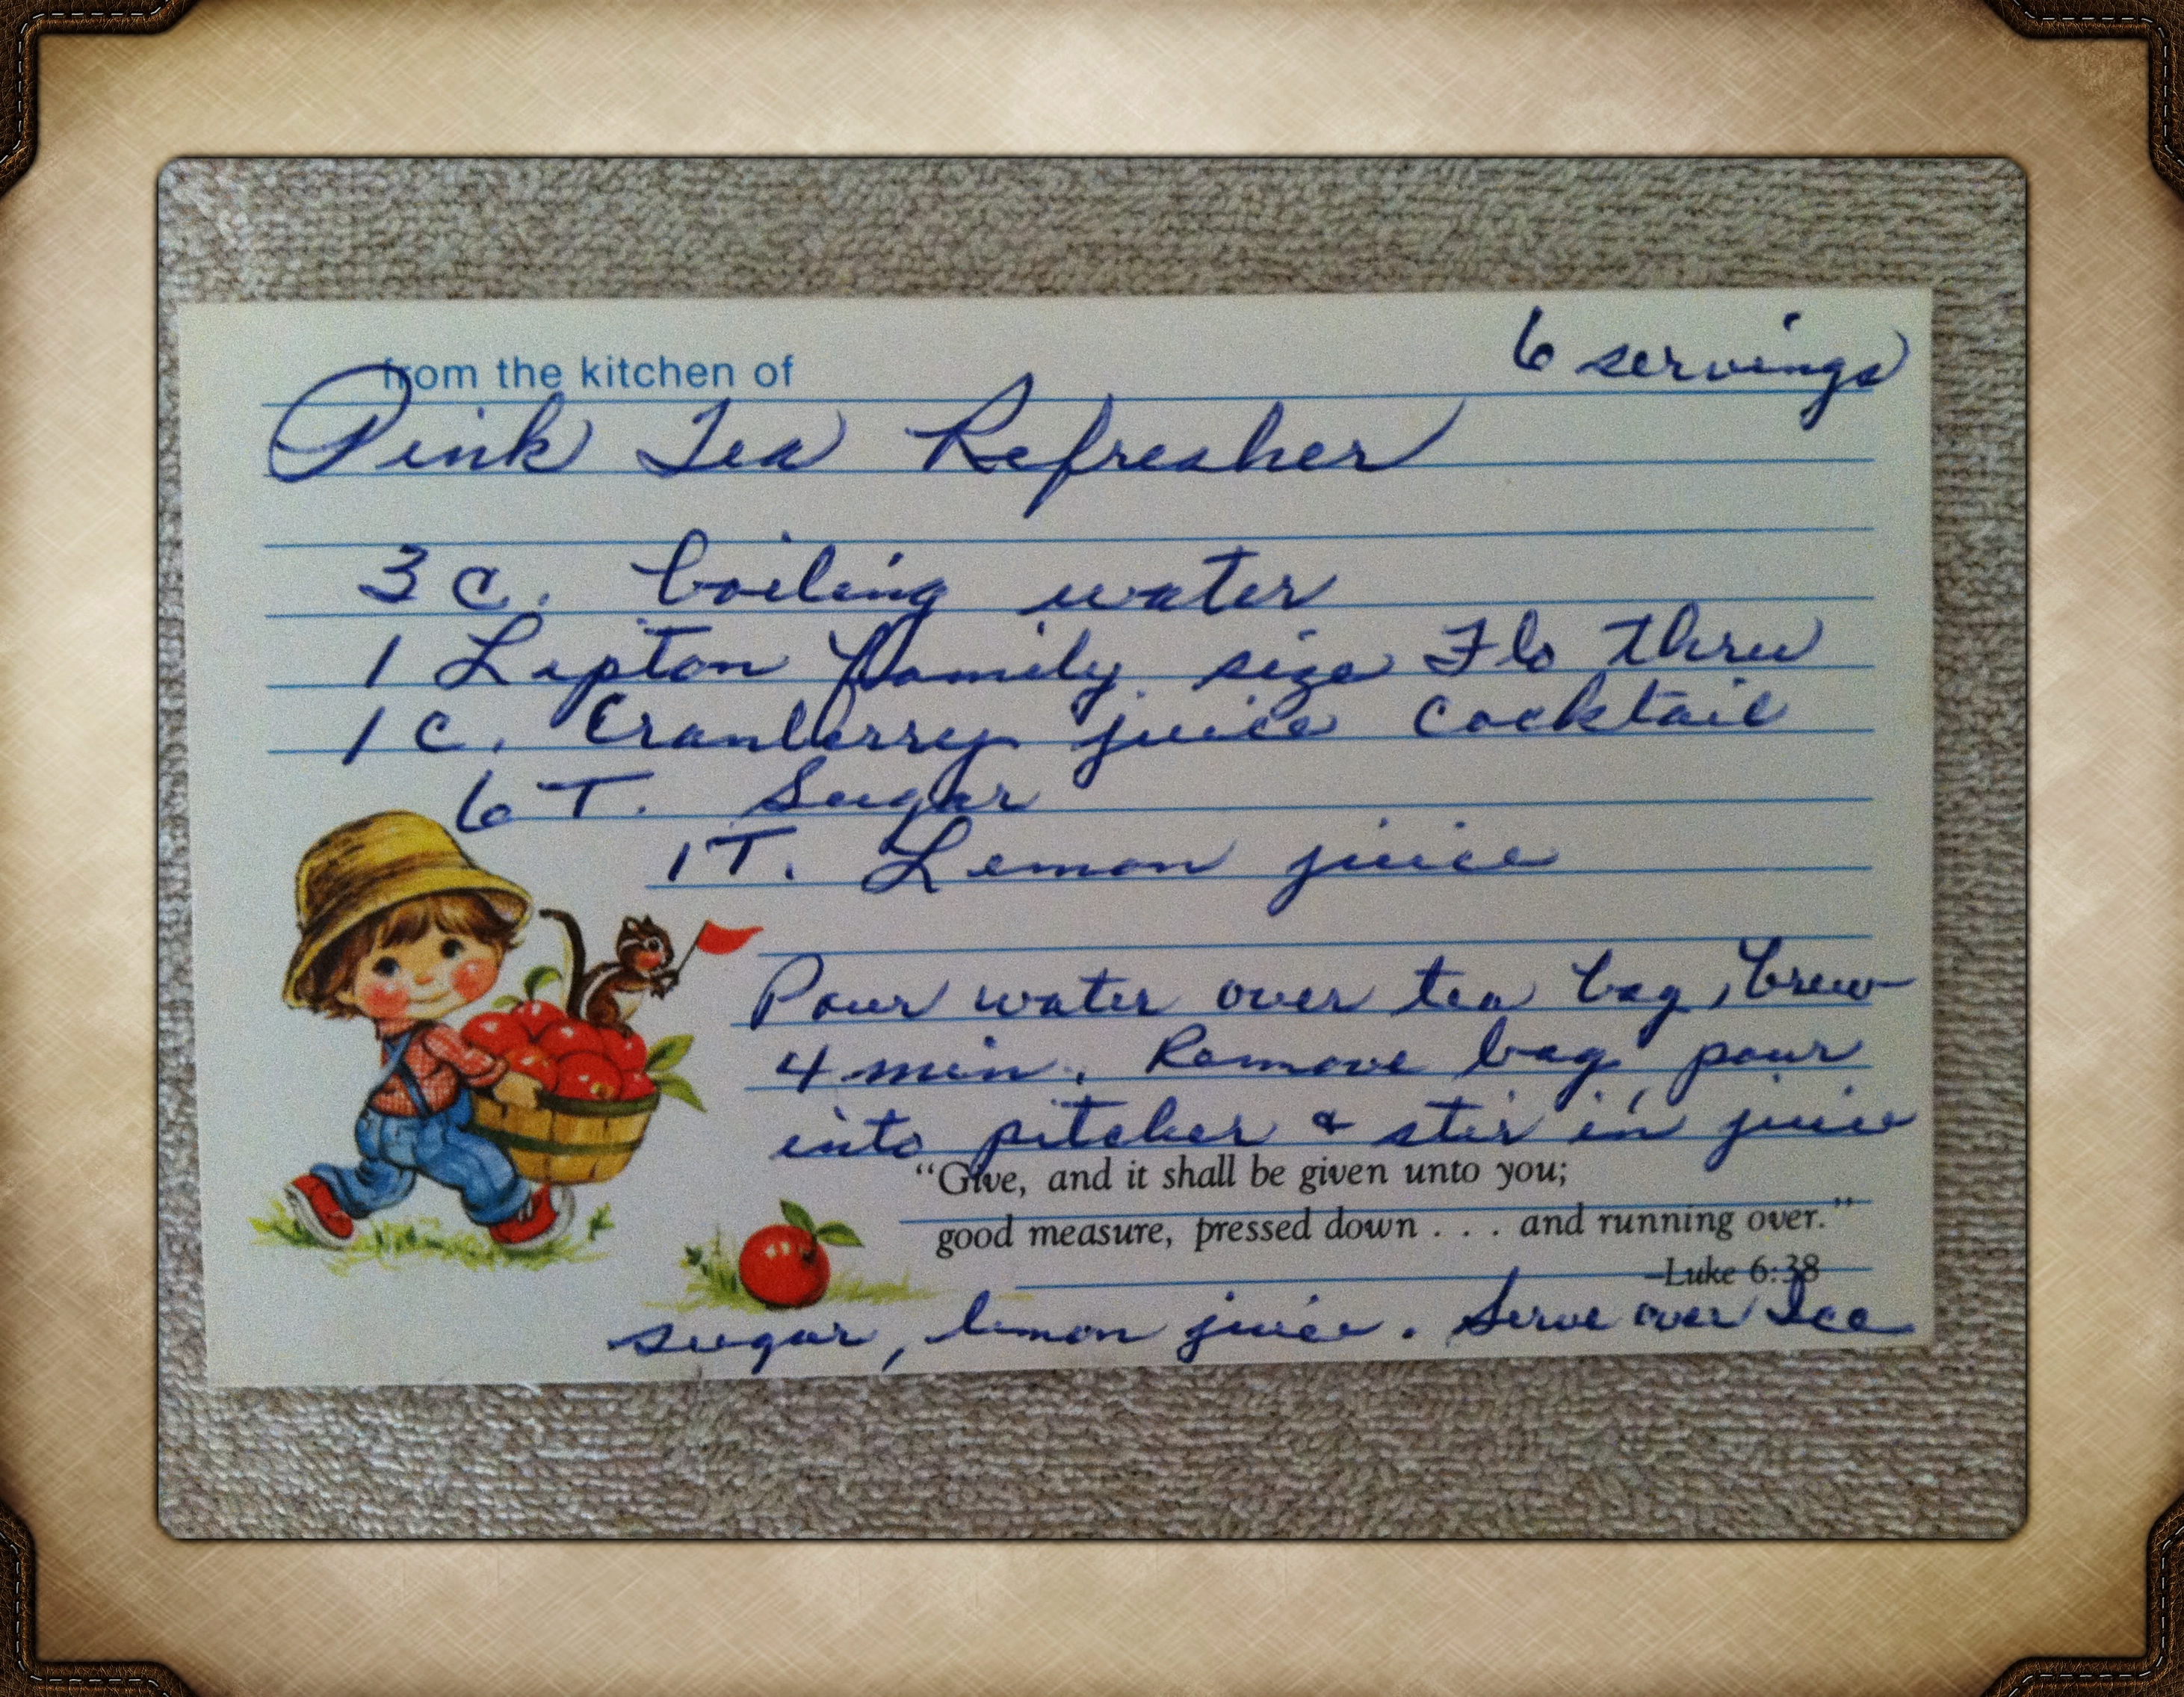 from the kitchen of
6 servings
Pink Tea Refresher
3 c. boiling water
1 Lipton family size Flo thru
1 c. Cranberry juice cocktail
6 T. Sugar
1 T. Lemon juice
Pour water over tea bag, brew
4 min. Remove bag, pour
into pitcher & stir in juice
"Give, and it shall be given unto you;
good measure, pressed down . . . and running over."
–Luke 6:38
sugar, lemon juice. Serve over Ice